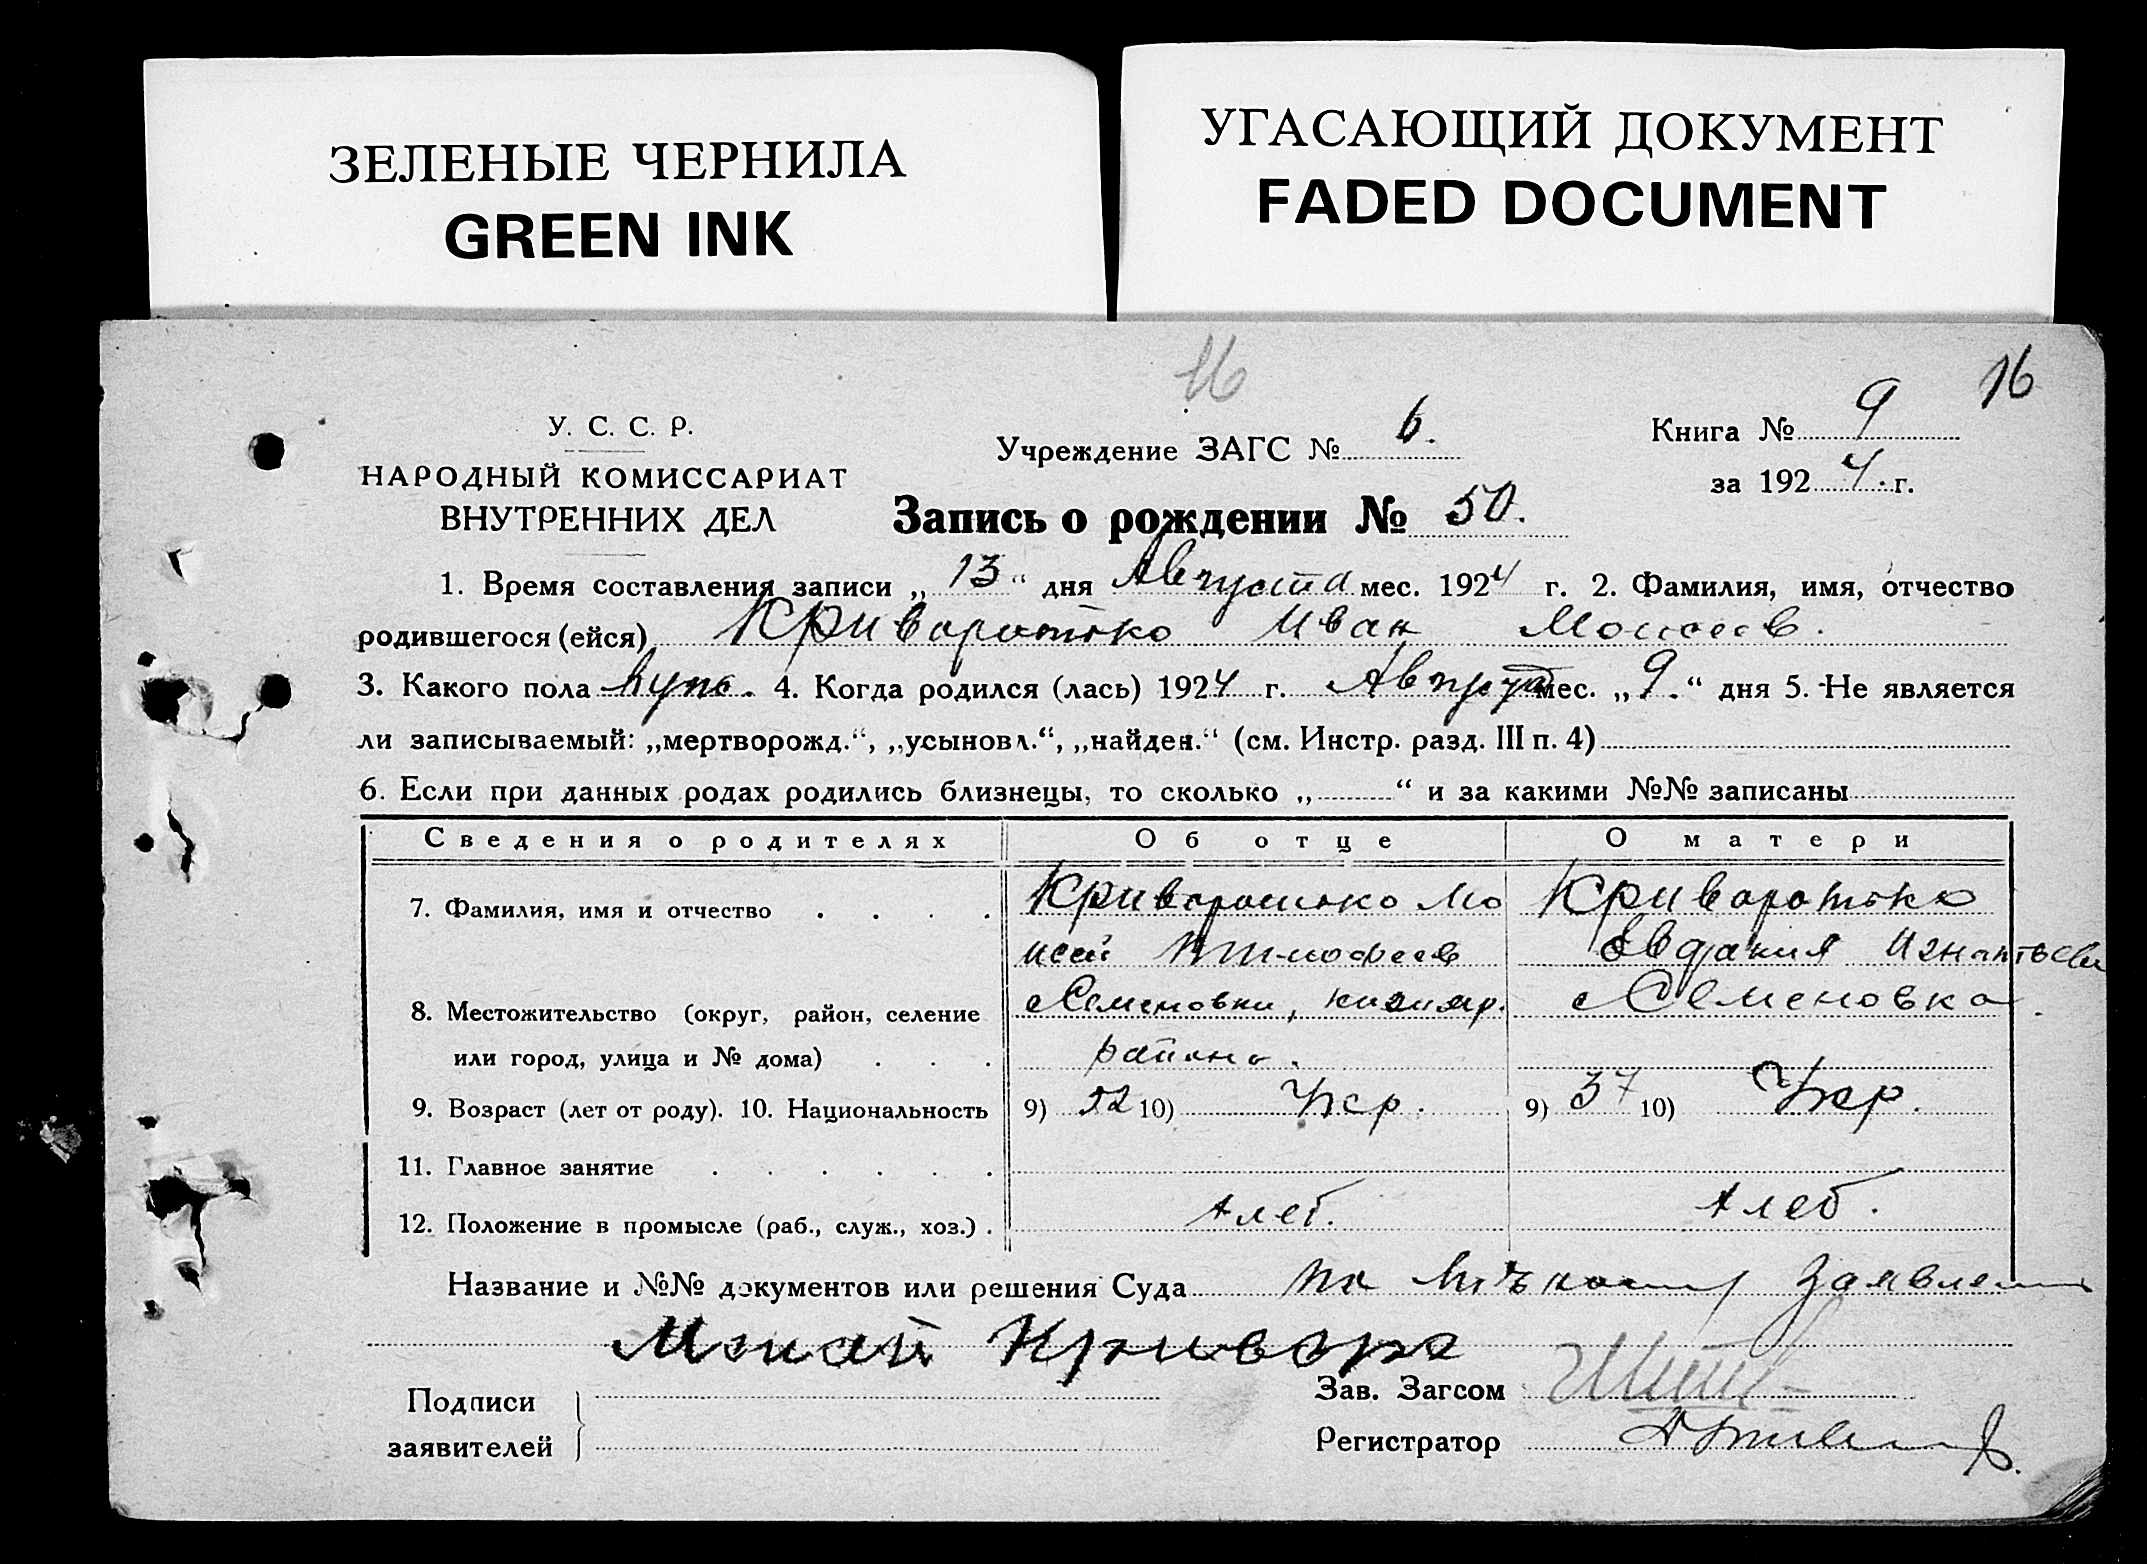 ЗЕЛЕНЫЕ ЧЕРНИЛА
GREEN INK
УГАСАЮЩИЙ ДОКУМЕНТ
FADED DOCUMENT
16 16
У. С. С. Р.
НАРОДНЫЙ КОМИССАРИАТ
ВНУТРЕННИХ ДЕЛ
Учреждение ЗАГС № 6.
Книга № 9
за 1924 г.
Запись о рождении № 50.
1. Время составления записи „13“ дня Августа мес. 1924 г. 2. Фамилия, имя, отчество
родившегося (ейся) Криворотько Иван Моисеев.
3. Какого пола муж. 4. Когда родился (лась) 1924 г. Августа мес. „9.“ дня 5. Не является
ли записываемый: „мертворожд.“, „усыновл.“, „найден.“ (см. Инстр. разд. III п. 4)
6. Если при данных родах родились близнецы, то сколько „ “ и за какими №№ записаны
Сведения о родителях Об отце О матери
7. Фамилия, имя и отчество . . . . Криворотько Мо Криворотько
исей Тимофеев Евдокия Игнатьева
8. Местожительство (округ, район, селение Семеновки, Семеновка
или город, улица и № дома) . . . района.
9. Возраст (лет от роду). 10. Национальность 9) 52 10) Укр. 9) 37 10) Укр.
11. Главное занятие . . . . . .
12. Положение в промысле (раб., служ., хоз.) . Хлеб. Хлеб.
Название и №№ документов или решения Суда По заявлению
Мосий Криворо
Подписи
заявителей
Зав. Загсом
Регистратор